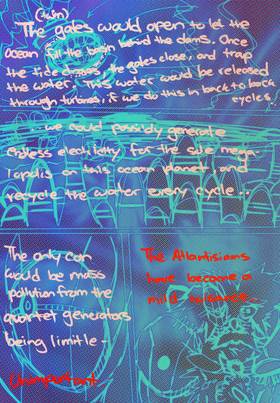 (twin)
The gates would open to let the
ocean fill the basin behind the dams. Once
the tide drops, the gates close, and trap
the water. This water would be released
through turbines, if we do this in back to back
cycles
...we could possibly generate
endless electricity for the sole mega-
lopolis on this ocean planet, and
recycle the water every cycle...
The only con
would be mass
pollution from the
quartet generators
being limitle-
The Atlantisians
have become a
mild nuisance...
Unimportant